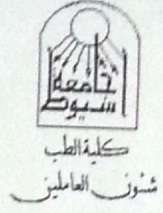 جامعة
أسيوط
كلية الطب
شئون العاملين